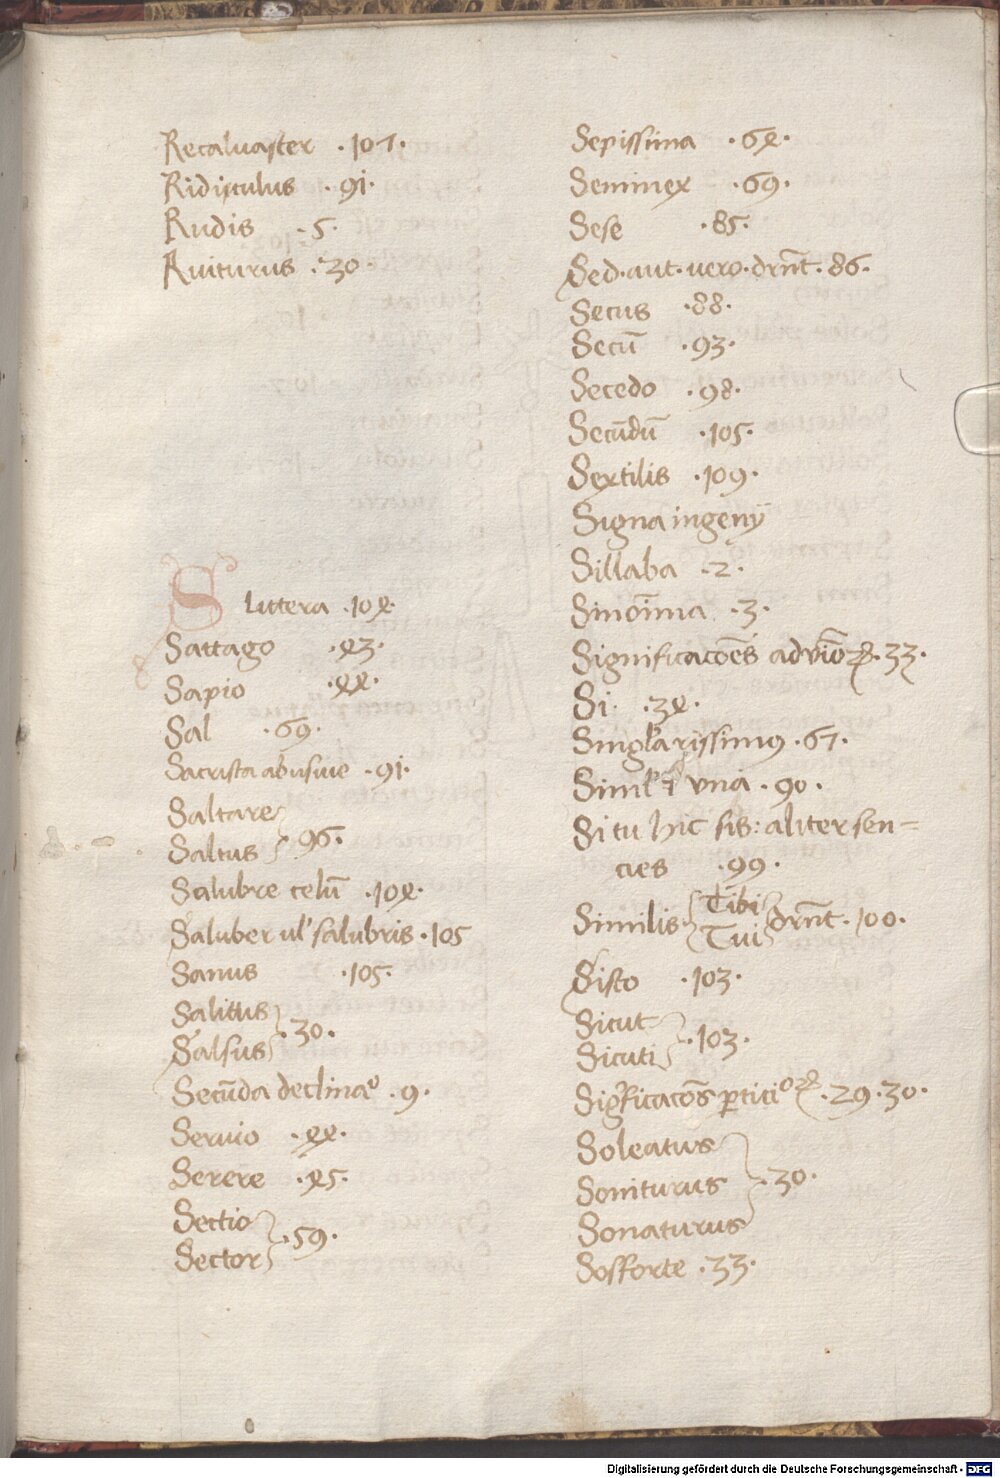 Recaluaster ·107·
Ridiculus ·91·
Rudis ·5·
Ruiturus ·30·
S littera ·104·
Sattago ·43·
Sapio ·44·
Sal ·69·
Sacrista abusiue ·91·
Saltare
Saltus } 96·
Salubre celū ·104·
Saluber ul' salubris ·105
Sanus ·105·
Salittus
Salsus } ·30·
Secūda declinaᵒ ·9·
Seruio ·44·
Serere ·45·
Sectio
Sector } ·59·
Sepissima ·64·
Seminex ·69·
Sese ·85·
Sed·aut·uero·drn̄t·86·
Secus ·88·
Secū ·93·
Secedo ·98·
Secūdū ·105·
Sextilis ·109·
Signa ingenij
Sillaba ·2·
Sinoīma ·3·
Significacōēs adv̄ioꝝ·33·
Si· ·34·
Singl'arissimꝯ ·67·
vna ·90·
Si tu hic sis: aliter sen=
cies ·99·
Similis· { Tibi
Tui } drn̄t·100·
Sisto ·103·
Sicut
Sicuti } ·103·
Sigficacōs ꝑticiᵒꝝ ·29·30·
Soleatus
Soniturus } ·30·
Sonaturus
Sofforte ·33·
Digitalisierung gefördert durch die Deutsche Forschungsgemeinschaft - DFG